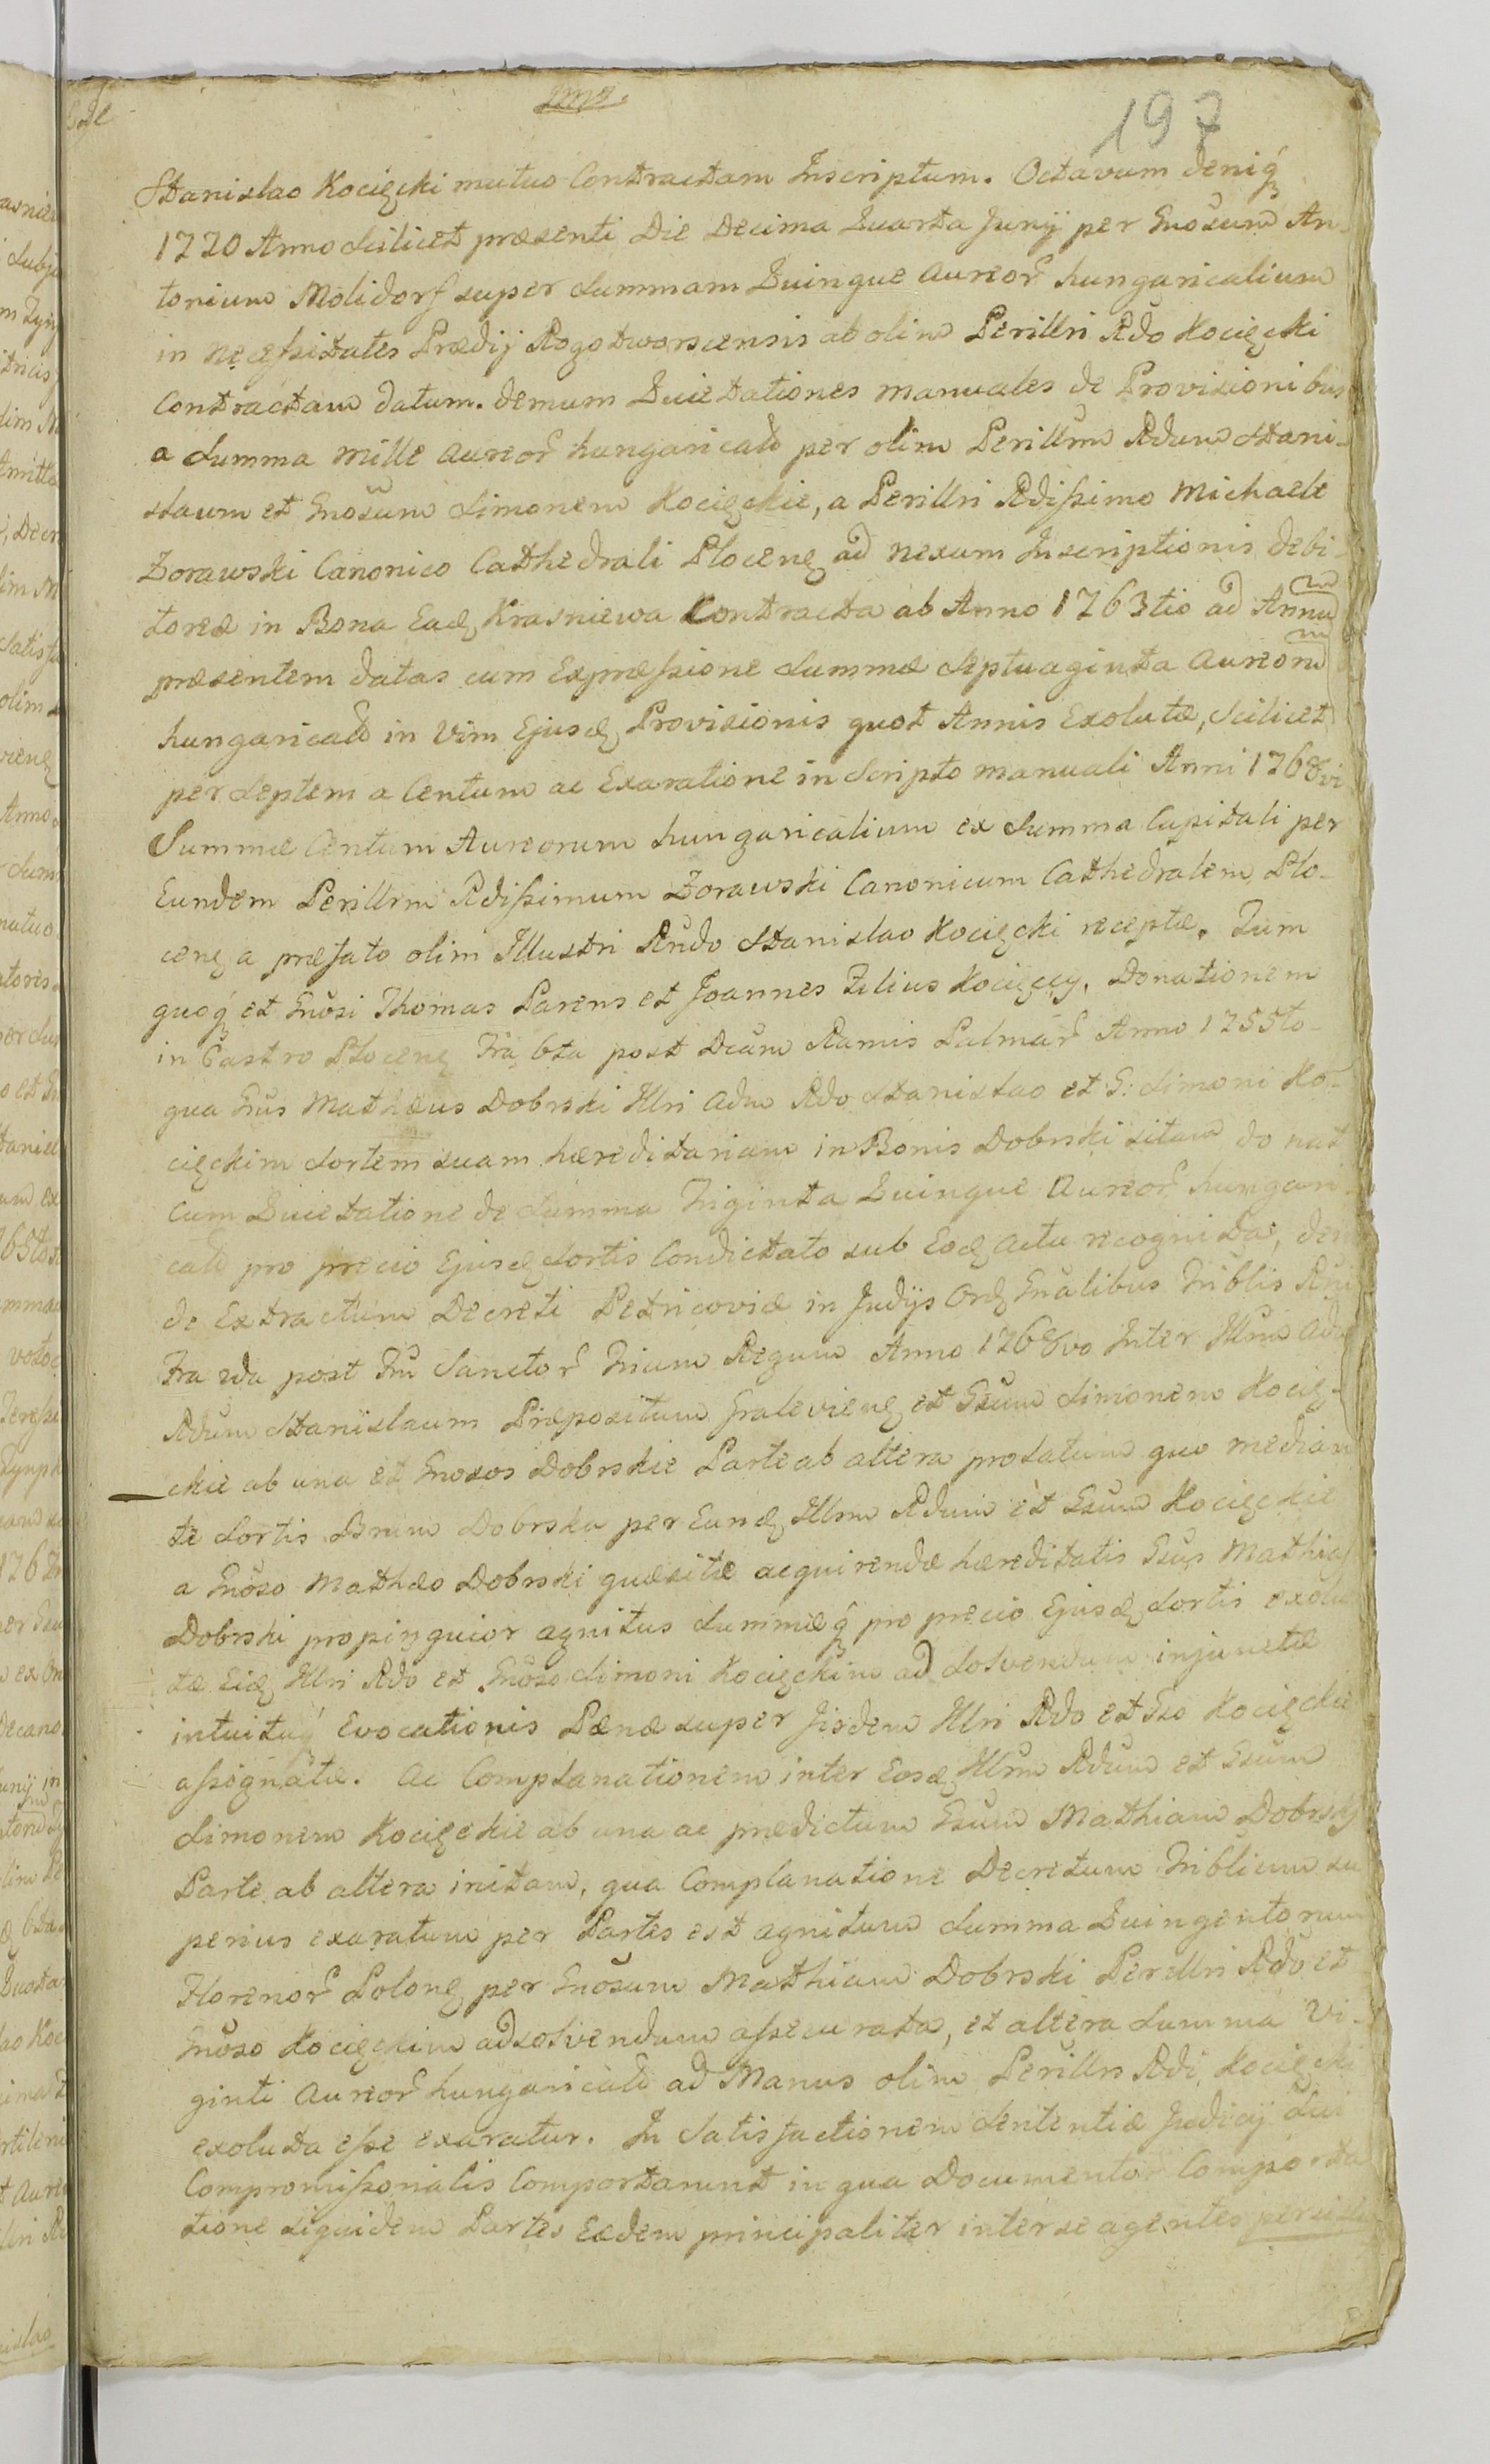 197
Stanislao Kocięcki mutuo Contractam Inscriptum. Octavum deniq́
1770 Anno scilicet præsenti Die Decima Quarta Junij per Gnosum An-
tonium Molidorf super summam Quinque Aureor hungaricalium
in necessitates Prædij Rogotworscensis ab olim Perillri Rdo Kocięcki
Contractam datum. demum Quietationes manuales de Provisionibus
a summa mille aureor hungaricaliu per olim Perillrm Rdum Stani-
slaum et Gnosum Simonem Kocięckie, a Perillri Rdissimo Michaele
Zorawski Canonico Cathedrali Plocenę ad nexum Inscriptionis debi-
toreæ in Bona Eadę Krasniewa Contracta ab Anno 1763tio ad Annu
præsentem datas cum Expressione summæ septuaginta Aureoru
hungaricaliu in vim Ejusdę Provisionis quot Annis Exolutæ, scilicet
per septem a Centum ac Exaratione in scripto manuali Anni 1768vi
Summæ Centum Aureorum hungaricalium ex summa Capitali per
Eundem Perillrm Rdissimum Zorawski Canonicum Cathedralem Plo-
cenę a præfato olim Illustri Rndo Stanislao Kocięcki receptæ. Tum
quoq́ et Gnosi Thomas Parens et Joannes Filius Kocięccy, Donationem
in Castro Plocenę Fria 6ta post Dcam Ramis Palmar Anno 1755to
qua Gnus Mathæus Dobrski Illri adm Rdo Stanislao et G: Simoni Ko-
cięckim sortem suam hæreditariam in Bonis Dobrski sitam donat
cum Quietatione de summa Triginta Quinque Aureor hungari-
caliu pro precio Ejusdę sortis Condictato sub Eodę actu recognita,
de Extractum Decreti Petricoviæ in Judijs Ordę Gnalibus Triblis Rgni
Fria 2da post Fm Sanctor Trium Regum Anno 1768vo Inter Illrm adm
Rdum Stanislaum Præpositum Gralevienę et Gsum Simonem Kocię-
ckie ab una et Gnosos Dobrskie Parte ab altera prolatum quo median
te sortis Bnrm Dobrska per Eundę Illrm Rdum et Gsum Kocięckie
a Gnoso Mathæo Dobrski quæsitæ acquirendæ hæreditatis Gsus Mathias
Dobrski propinquior agnitus summæq́ pro precio Ejusdę sortis exolu
tæ Eidę Illri Rdo et Gnoso Simoni Kocięckim ad solvendum injunctæ
intuituq́ Evocationis Pænæ super Jisdem Illri Rdo et Gso Kocięckie
assignatæ. ac Complanationem inter Eosdę Illrm Rdum et Gsum
Simonem Kocięckie ab una ac prædictum Gsum Mathiam Dobrski
Parte ab altera initam, qua Complanatione Decretum Triblium su
perius exaratum per Partes est agnitum summa Quingentorum
Florenor Polonę per Gnosum Mathiam Dobrski Perillri Rdo et
Gnoso Kocięckim adsolvendum assecurata, et altera summa Vi-
ginti Aureor hungaricaliu ad Manus olim Perillris Rdi Kocięcki
exoluta esse exaratur. In satisfactionem sententiæ Judicij sui
Compromissorialis Comportarunt in qua Documentor Comporta
tione siquidem Partes Eædem principaliter inter se agentes